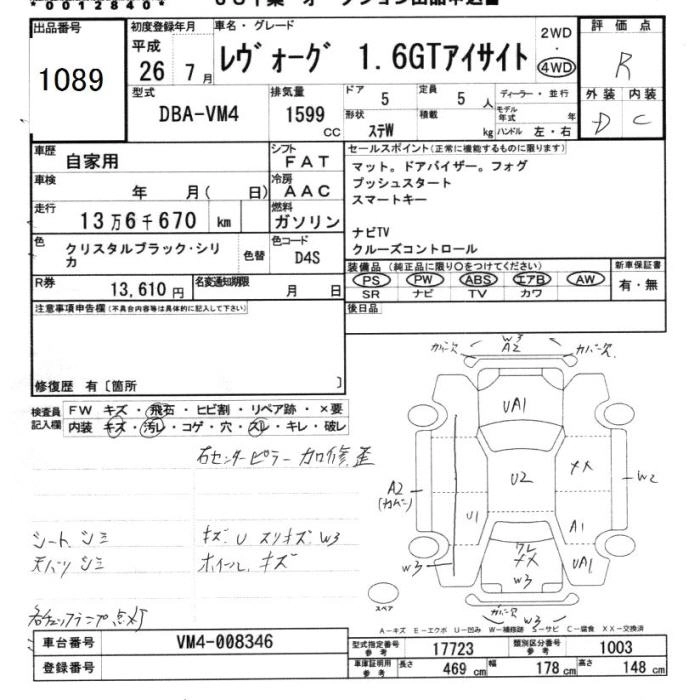 *0012840*
出品番号
1089
初度登録年月
平成
26 7月
車名・グレード
レヴォーグ 1.6GTアイサイト
2WD
・
4WD
評価点
R
外装 内装
D C
型式
DBA-VM4
排気量
1599
CC
ドア
5
定員
5 人
ディーラー・並行
形状
ステW
積載
kg
モデル年式 年
ハンドル 左・右
車歴
自家用
シフト
FAT
車検
年 月( 日)
冷房
AAC
走行
13万6千670 km
燃料
ガソリン
色
クリスタルブラック・シリ
カ
色替
色コード
D4S
R券
13,610 円
名変通知期限
月 日
セールスポイント(正常に機能するものに限ります)
マット。ドアバイザー。フォグ
プッシュスタート
スマートキー
ナビTV
クルーズコントロール
装備品 (純正品に限り○をつけてください)
PS PW ABS エアB AW
SR ナビ TV カワ
新車保証書
有・無
後日品
注意事項申告欄(不具合内容等は具体的に記入して下さい)
修復歴 有〔箇所 〕
検査員
記入欄
FW キズ・飛石・ヒビ割・リペア跡・×要
内装 キズ・汚レ・コゲ・穴・スレ・キレ・破レ
右センターピラー 加修、歪
シート、シミ
天バリ シミ
キズ、U スリキズ W3
ホイール、キズ
各チェックランプ点灯
カバー欠
W3
A2
カバー欠
UA1
U2
メメ
W2
A2
(カバー)
U1
A1
UA1
W3
ワレ
メメ
W3
カバー欠
W3
スペア
A-キズ E-エクボ U-凹み W-補修跡 S-サビ C-腐食 XX-交換済
車台番号
VM4-008346
登録番号
型式指定番号
参考
17723
類別区分番号
参考
1003
車庫証明用
参考
長さ 469 cm
幅 178 cm
高さ 148 cm